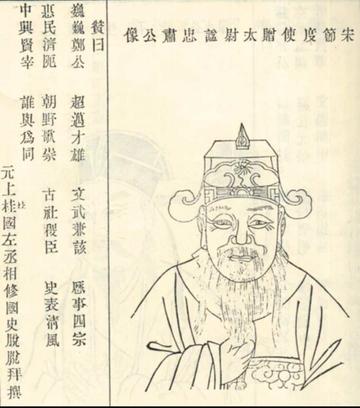 宋節度使贈太尉諡忠肅公像
贊曰
巍巍鄭公 超邁才雄 文武兼該 歷事四宗
惠民濟阨 朝野歌崇 古社稷臣 史表清風
中興賢宰 誰與爲同
元上桂國左丞相修國史脫脫拜撰
柱